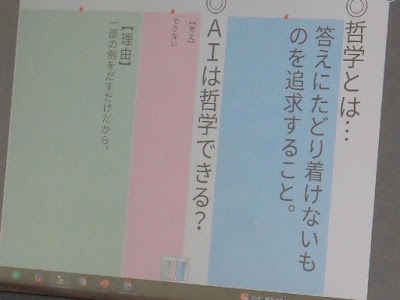 ◎哲学とは…
答えにたどり着けないも
のを追求すること。
◎ＡＩは哲学できる？
【考え】
できない
【理由】
一部の例をだすだけだから。